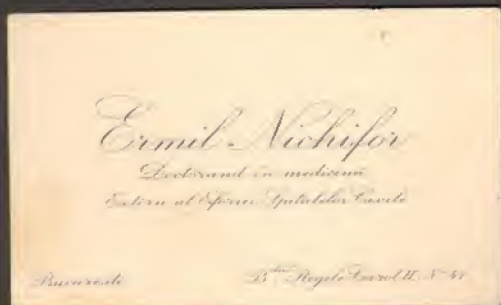 Ermil Nichifor
Doctorand în medicină
Extern al Eforiei Spitalelor Civile
București
B-dul Regele Carol II. N-